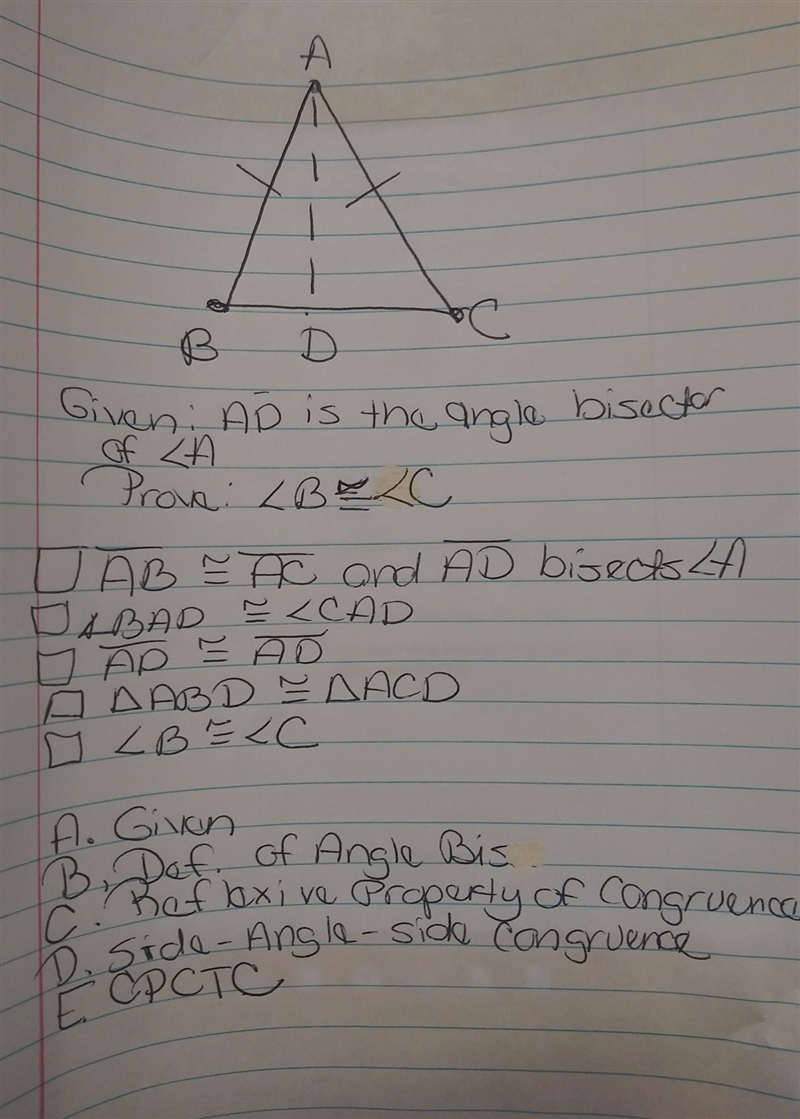 A
B D C
Given: A̅D̅ is the angle bisector
of ∠A
Prove: ∠B ≅ ∠C
A̅B̅ ≅ A̅C̅ and A̅D̅ bisects ∠A
∠BAD ≅ ∠CAD
A̅D̅ ≅ A̅D̅
△ABD ≅ △ACD
∠B ≅ ∠C
A. Given
B. Def. of Angle Bis
C. Reflexive Property of Congruence
D. Side-Angle-side Congruence
E. CPCTC